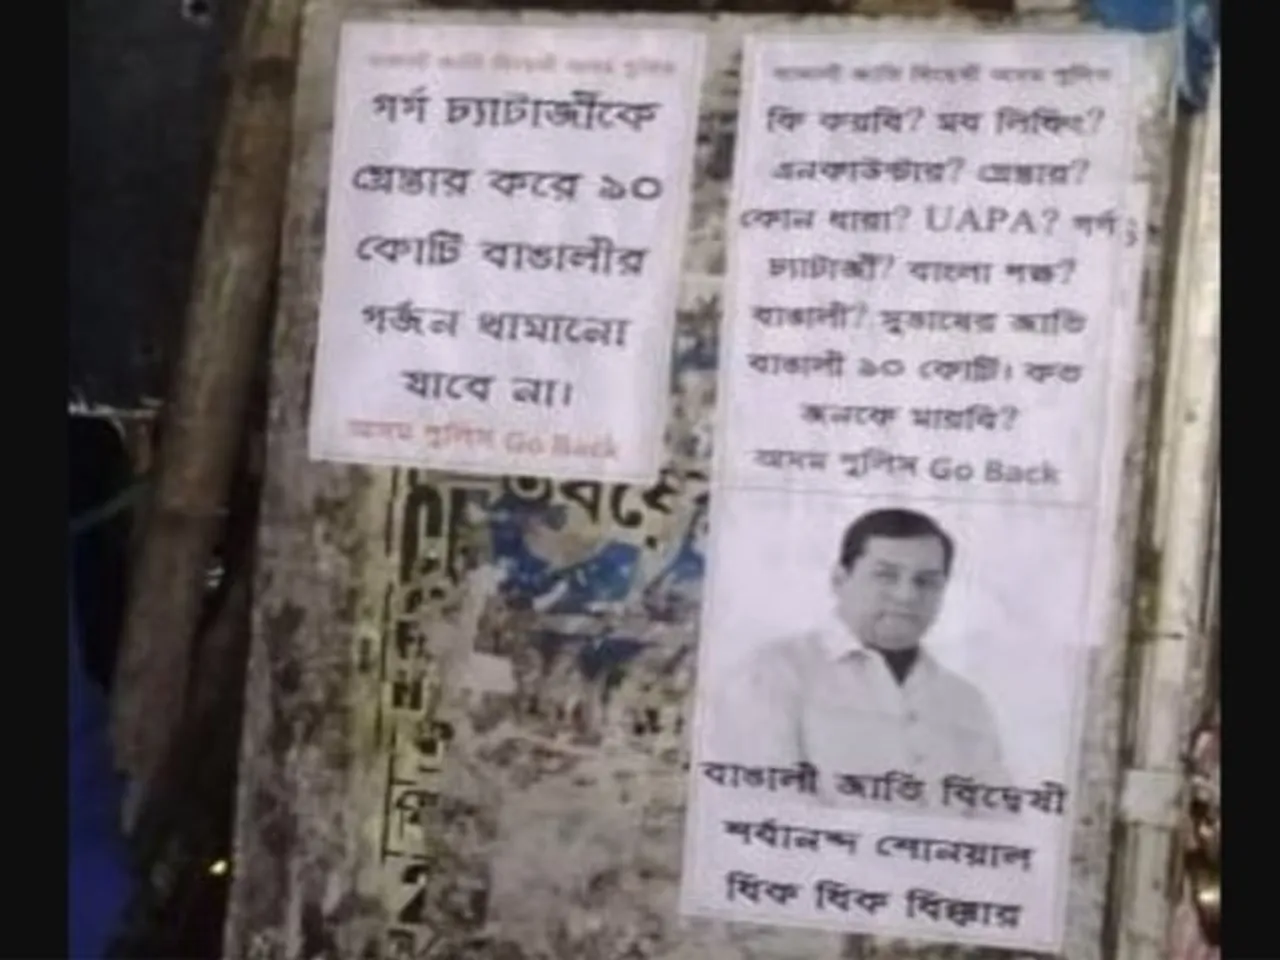 বাঙালী জাতি বিদ্বেষী অসম পুলিশ
গর্গ চ্যাটার্জীকে
গ্রেপ্তার করে ১০
কোটি বাঙালীর
গর্জন থামানো
যাবে না।
অসম পুলিশ Go Back
বাঙালী জাতি বিদ্বেষী অসম পুলিশ
কি করবি? মব লিঞ্চিং?
এনকাউন্টার? গ্রেপ্তার?
কোন ধারা? UAPA? গর্গ
চ্যাটার্জী? বাংলা পক্ষ?
বাঙালী? সুভাষের জাতি
বাঙালী ১০ কোটি। কত
জনকে মারবি?
অসম পুলিশ Go Back
বাঙালী জাতি বিদ্বেষী
শর্বানন্দ শোনয়াল
ধিক ধিক ধিক্কার